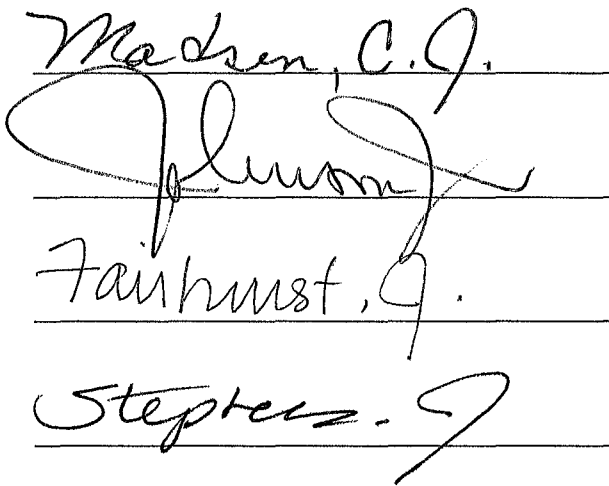 Madsen, C.J.
Johnson J
Fairhurst, J.
Stephens. J